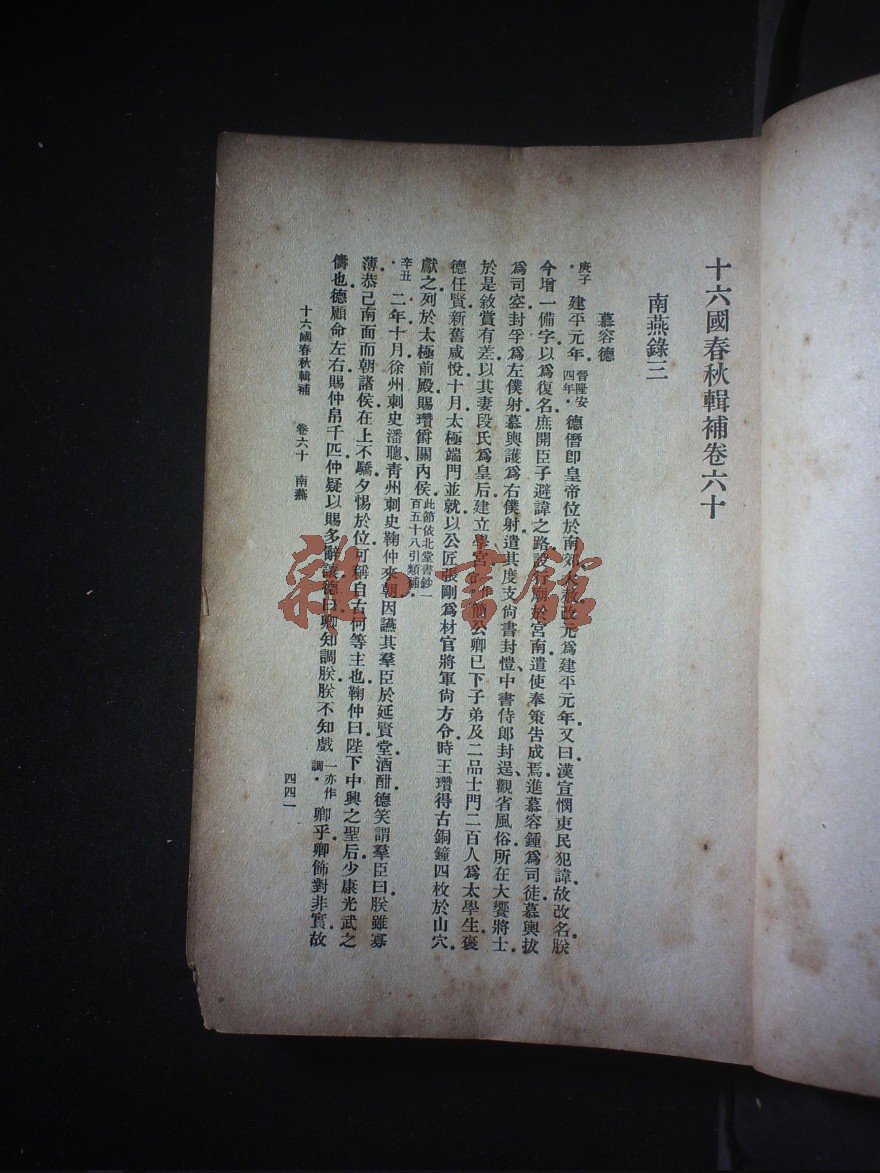 十六國春秋輯補卷六十
南燕錄三
慕容德
庚子 建平元年晉隆安四年。德僭卽皇帝位於南郊大赦改元爲建平元年又曰漢宣憫吏民犯諱故改名朕
今增一備字以爲復名庶開臣子避諱之路設行廟於宮南遣使奉策告成焉進慕容鍾爲司徒慕輿拔
爲司空封孚爲左僕射慕輿護爲右僕射遣其度支尙書封愷、中書侍郎封逞、觀省風俗所在大饗將士
於是敘賞有差以其妻段氏爲皇后建立學宮 簡公卿已下子弟及二品士門二百人爲太學生褒
德任賢新舊咸悅十月太極端門並就以公匠張剛爲材官將軍尙方令時王瓚得古銅鐘四枚於山穴
獻之列於太極前殿賜瓚爵關內侯此節依北堂書鈔一百五十八引類補。
辛丑。 二年十月徐州刺史潘聰、靑州刺史鞠仲來朝因讌其羣臣於延賢堂酒酣德笑謂羣臣曰朕雖寡
薄恭己南面而朝諸侯在上不驕夕惕於位可稱自古何等主也鞠仲曰陛下中興之聖后少康光武之
儔也德顧命左右賜仲帛千匹仲疑以賜多辭讓德曰卿知調朕朕不知戲一亦作調。卿乎卿飾對非實故
十六國春秋輯補 卷六十 南燕
四四一
雜·書館